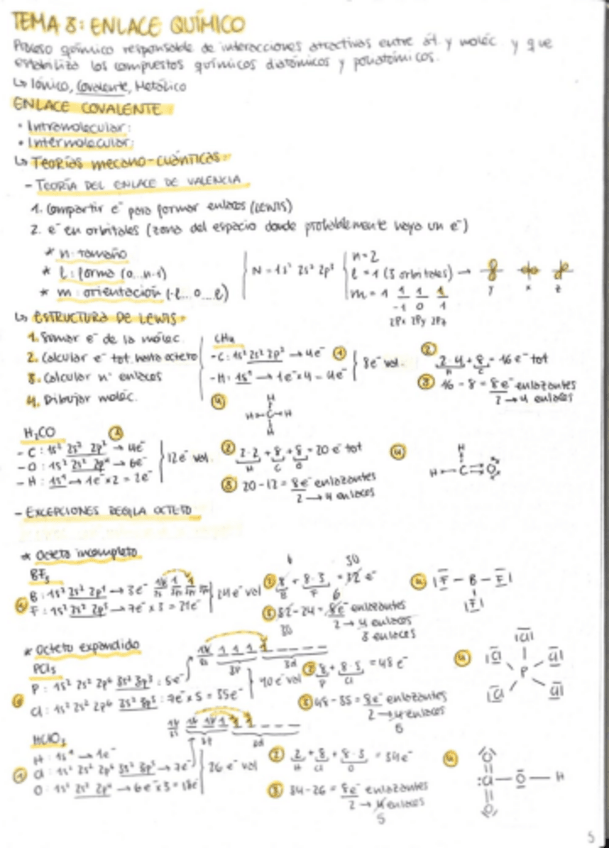 TEMA 8: ENLACE QUÍMICO
Proceso químico responsable de interacciones atractivas entre át. y moléc. y que
estabiliza los compuestos químicos diatómicos y poliatómicos.
↳ Iónico, Covalente, Metálico
ENLACE COVALENTE
• Intramolecular:
• Intermolecular:
↳ Teorías mecano-cuánticas:
- TEORÍA DEL ENLACE DE VALENCIA
1. Compartir e⁻ para formar enlaces (LEWIS)
2. e⁻ en orbitales (zona del espacio donde probablemente haya un e⁻)
* n: tamaño
* l: forma (0...n-1)
* m: orientación (-l...0...l)
N = 1s² 2s² 2p³
n=2
l = 1 (3 orbitales) →
m = 1 1 1 1
-1 0 1
2Px 2Py 2Pz
y x z
↳ ESTRUCTURA DE LEWIS:
1. Sumar e⁻ de la moléc.
2. Calcular e⁻ tot. hasta octeto
3. Calcular nº enlaces
4. Dibujar moléc.
CH₄
- C: 1s² 2s² 2p² → 4e⁻ ①
- H: 1s¹ → 1e⁻ x 4 = 4e⁻
8e⁻ val.
② 2·4 + 8 = 16 e⁻ tot
H C
③ 16 - 8 = 8e⁻ enlazantes
2 → 4 enlaces
④
H
H-C-H
H
H₂CO ①
- C: 1s² 2s² 2p² → 4e⁻
- O: 1s² 2s² 2p⁴ → 6e⁻
- H: 1s¹ → 1e⁻ x 2 = 2e⁻
12e⁻ val.
② 2·2 + 8 + 8 = 20 e⁻ tot
H C O
③ 20 - 12 = 8e⁻ enlazantes
2 → 4 enlaces
④
H
H-C=O
- EXCEPCIONES REGLA OCTETO
* Octeto incompleto
BF₃
① B: 1s² 2s² 2p¹ → 3e⁻
F: 1s² 2s² 2p⁵ → 7e⁻ x 3 = 21e⁻
24e⁻ val
6 30
② 8 + 8·3 = 32 e⁻
B F
6
③ 32 - 24 = 8e⁻ enlazantes
30
2 → 4 enlaces
3 enlaces
④ F - B - F
F
* Octeto expandido
PCl₅
① P: 1s² 2s² 2p⁶ 3s² 3p³: 5e⁻
Cl: 1s² 2s² 2p⁶ 3s² 3p⁵: 7e⁻ x 5 = 35e⁻
3s 3p 3d
40e⁻ val
② 8 + 8·5 = 48 e⁻
P Cl
③ 48 - 35 = 8e⁻ enlazantes
2 → 4 enlaces
④
Cl
Cl Cl
P
Cl Cl
HClO₃
① H: 1s¹ → 1e⁻
Cl: 1s² 2s² 2p⁶ 3s² 3p⁵ → 7e⁻
O: 1s² 2s² 2p⁴ → 6e⁻ x 3 = 18e⁻
3s 3p 3d
26 e⁻ val
② 2 + 8 + 8·3 = 34e⁻
H Cl O
③ 34 - 26 = 8e⁻ enlazantes
2 → 4 enlaces
5
④
O
:Cl - O - H
O
5